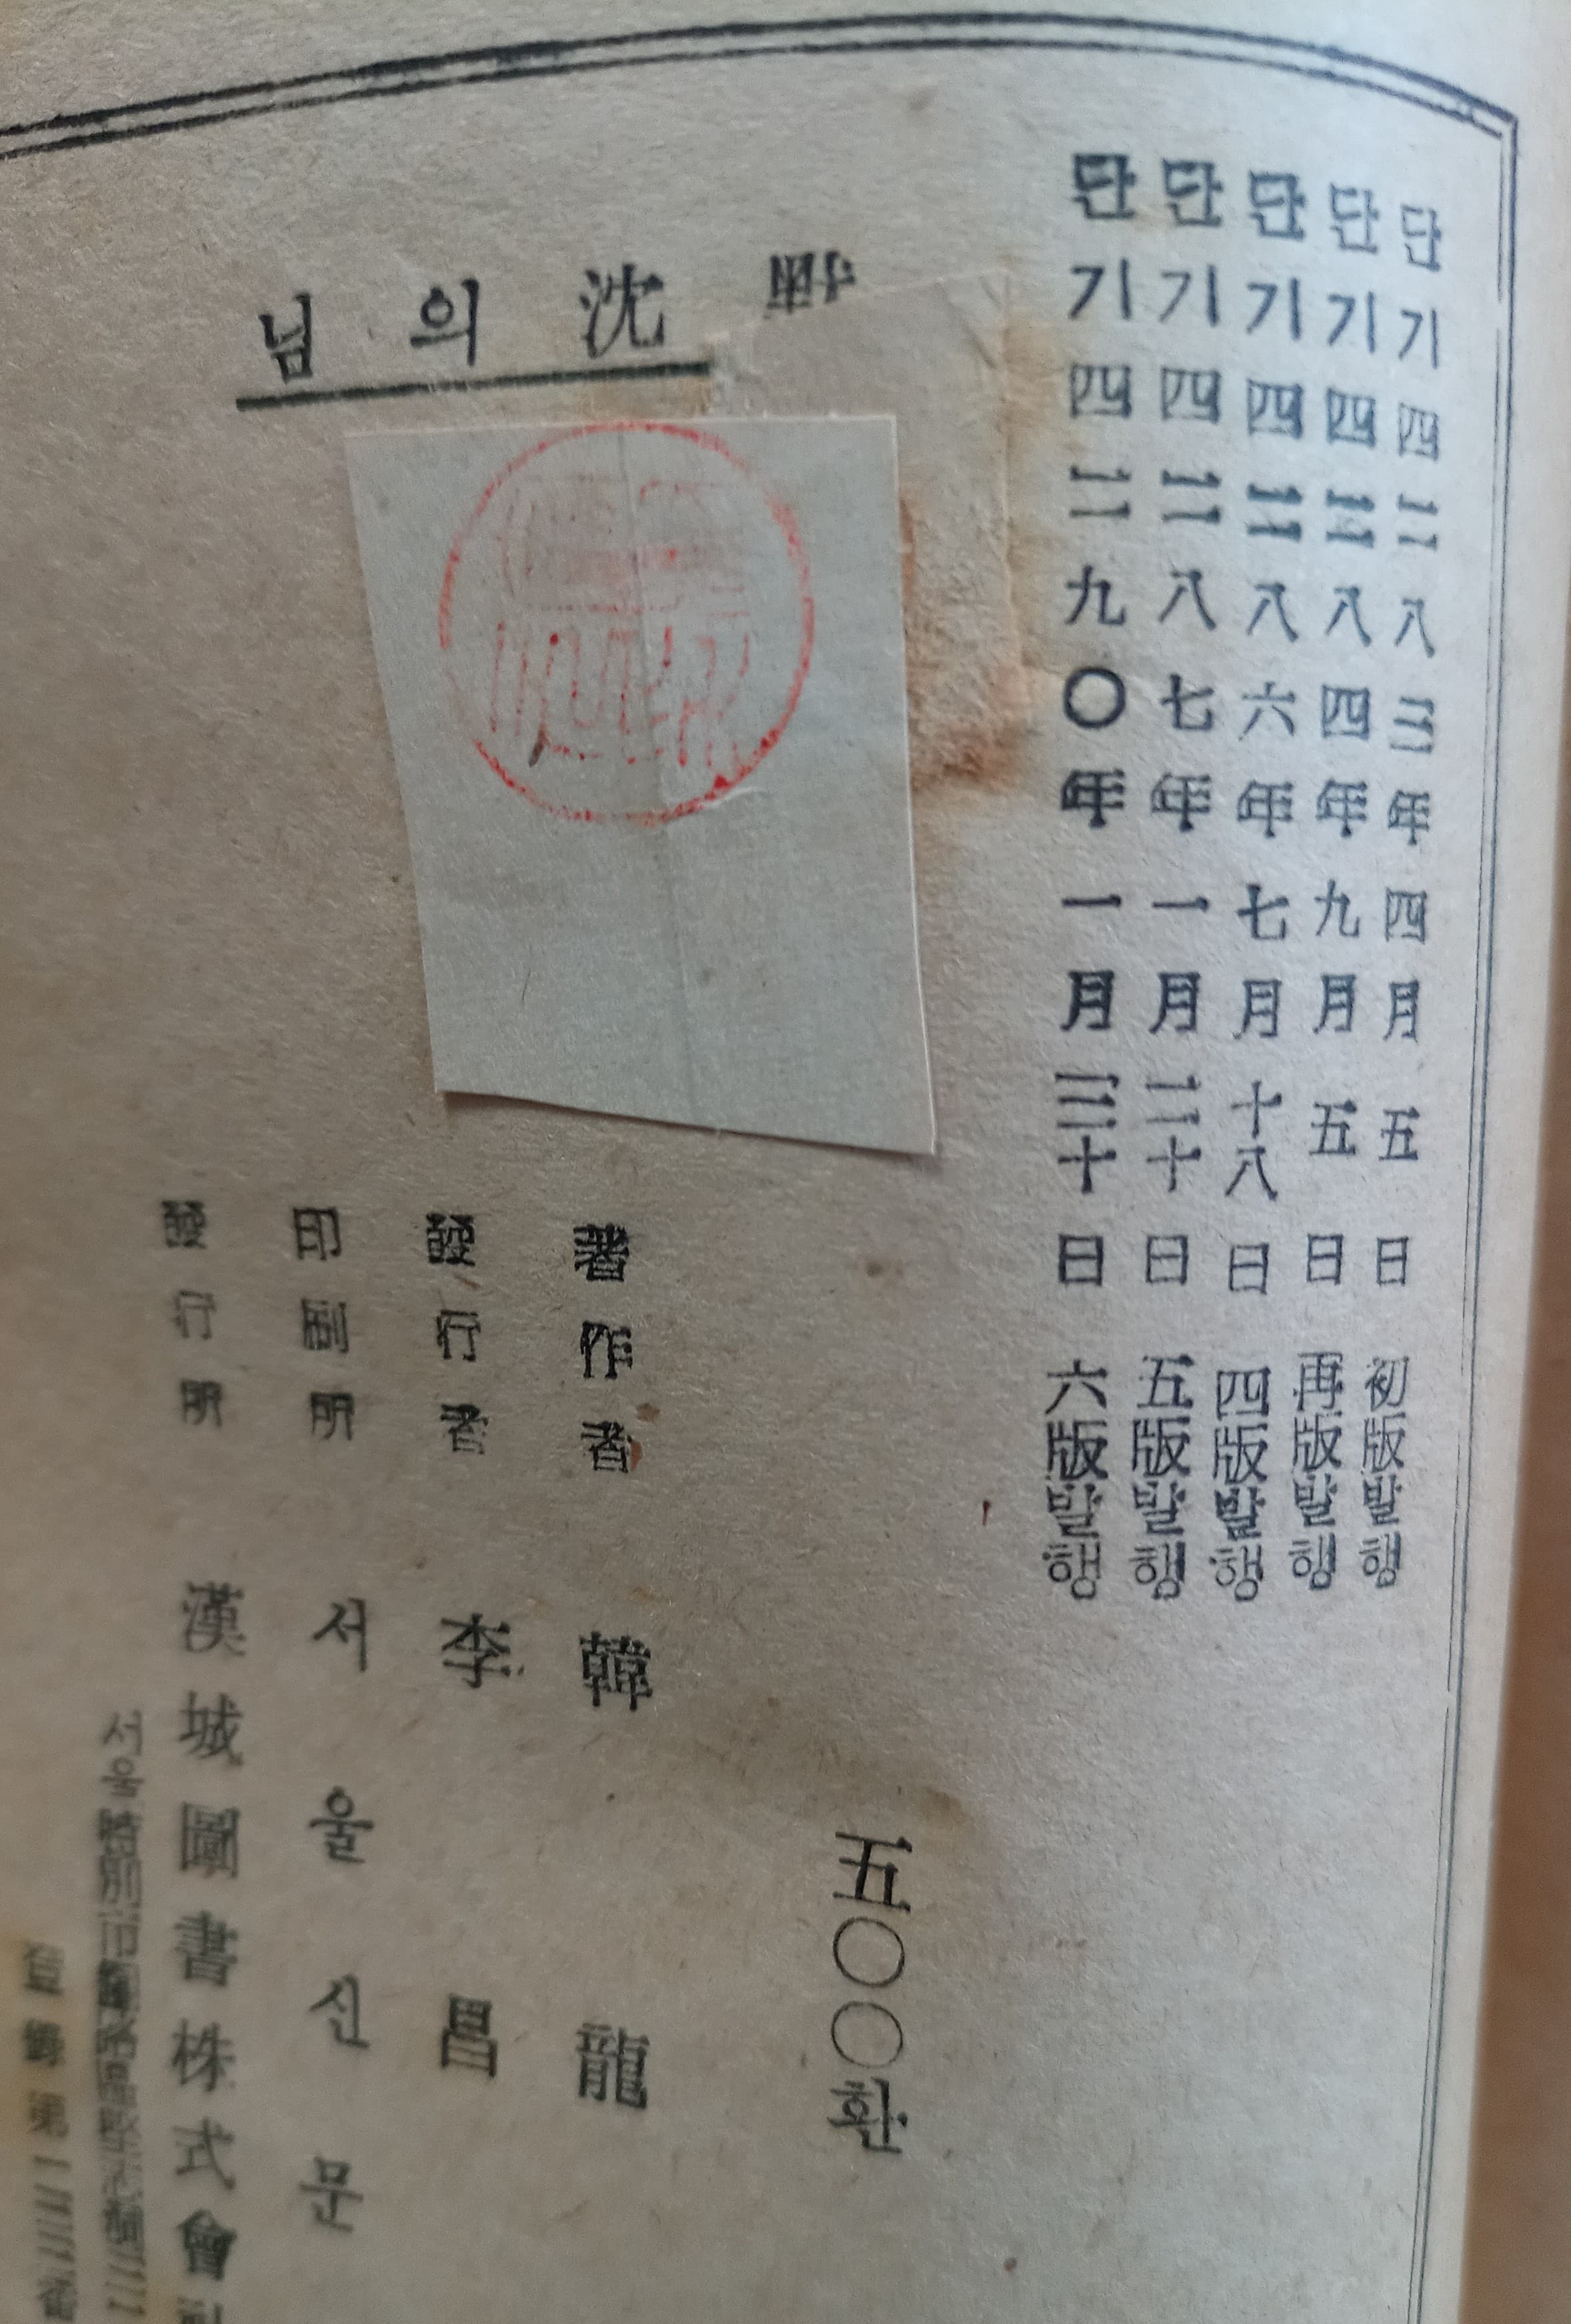 단기四二八三年四月五日 初版발행
단기四二八四年九月五日 再版발행
단기四二八六年七月十八日 四版발행
단기四二八七年一月二十日 五版발행
단기四二九〇年一月三十日 六版발행
님의沈默
五〇〇환
著作者 韓龍
發行者 李昌
印刷所 서울신문
發行所 漢城圖書株式會
서울特別市鍾路區堅志洞